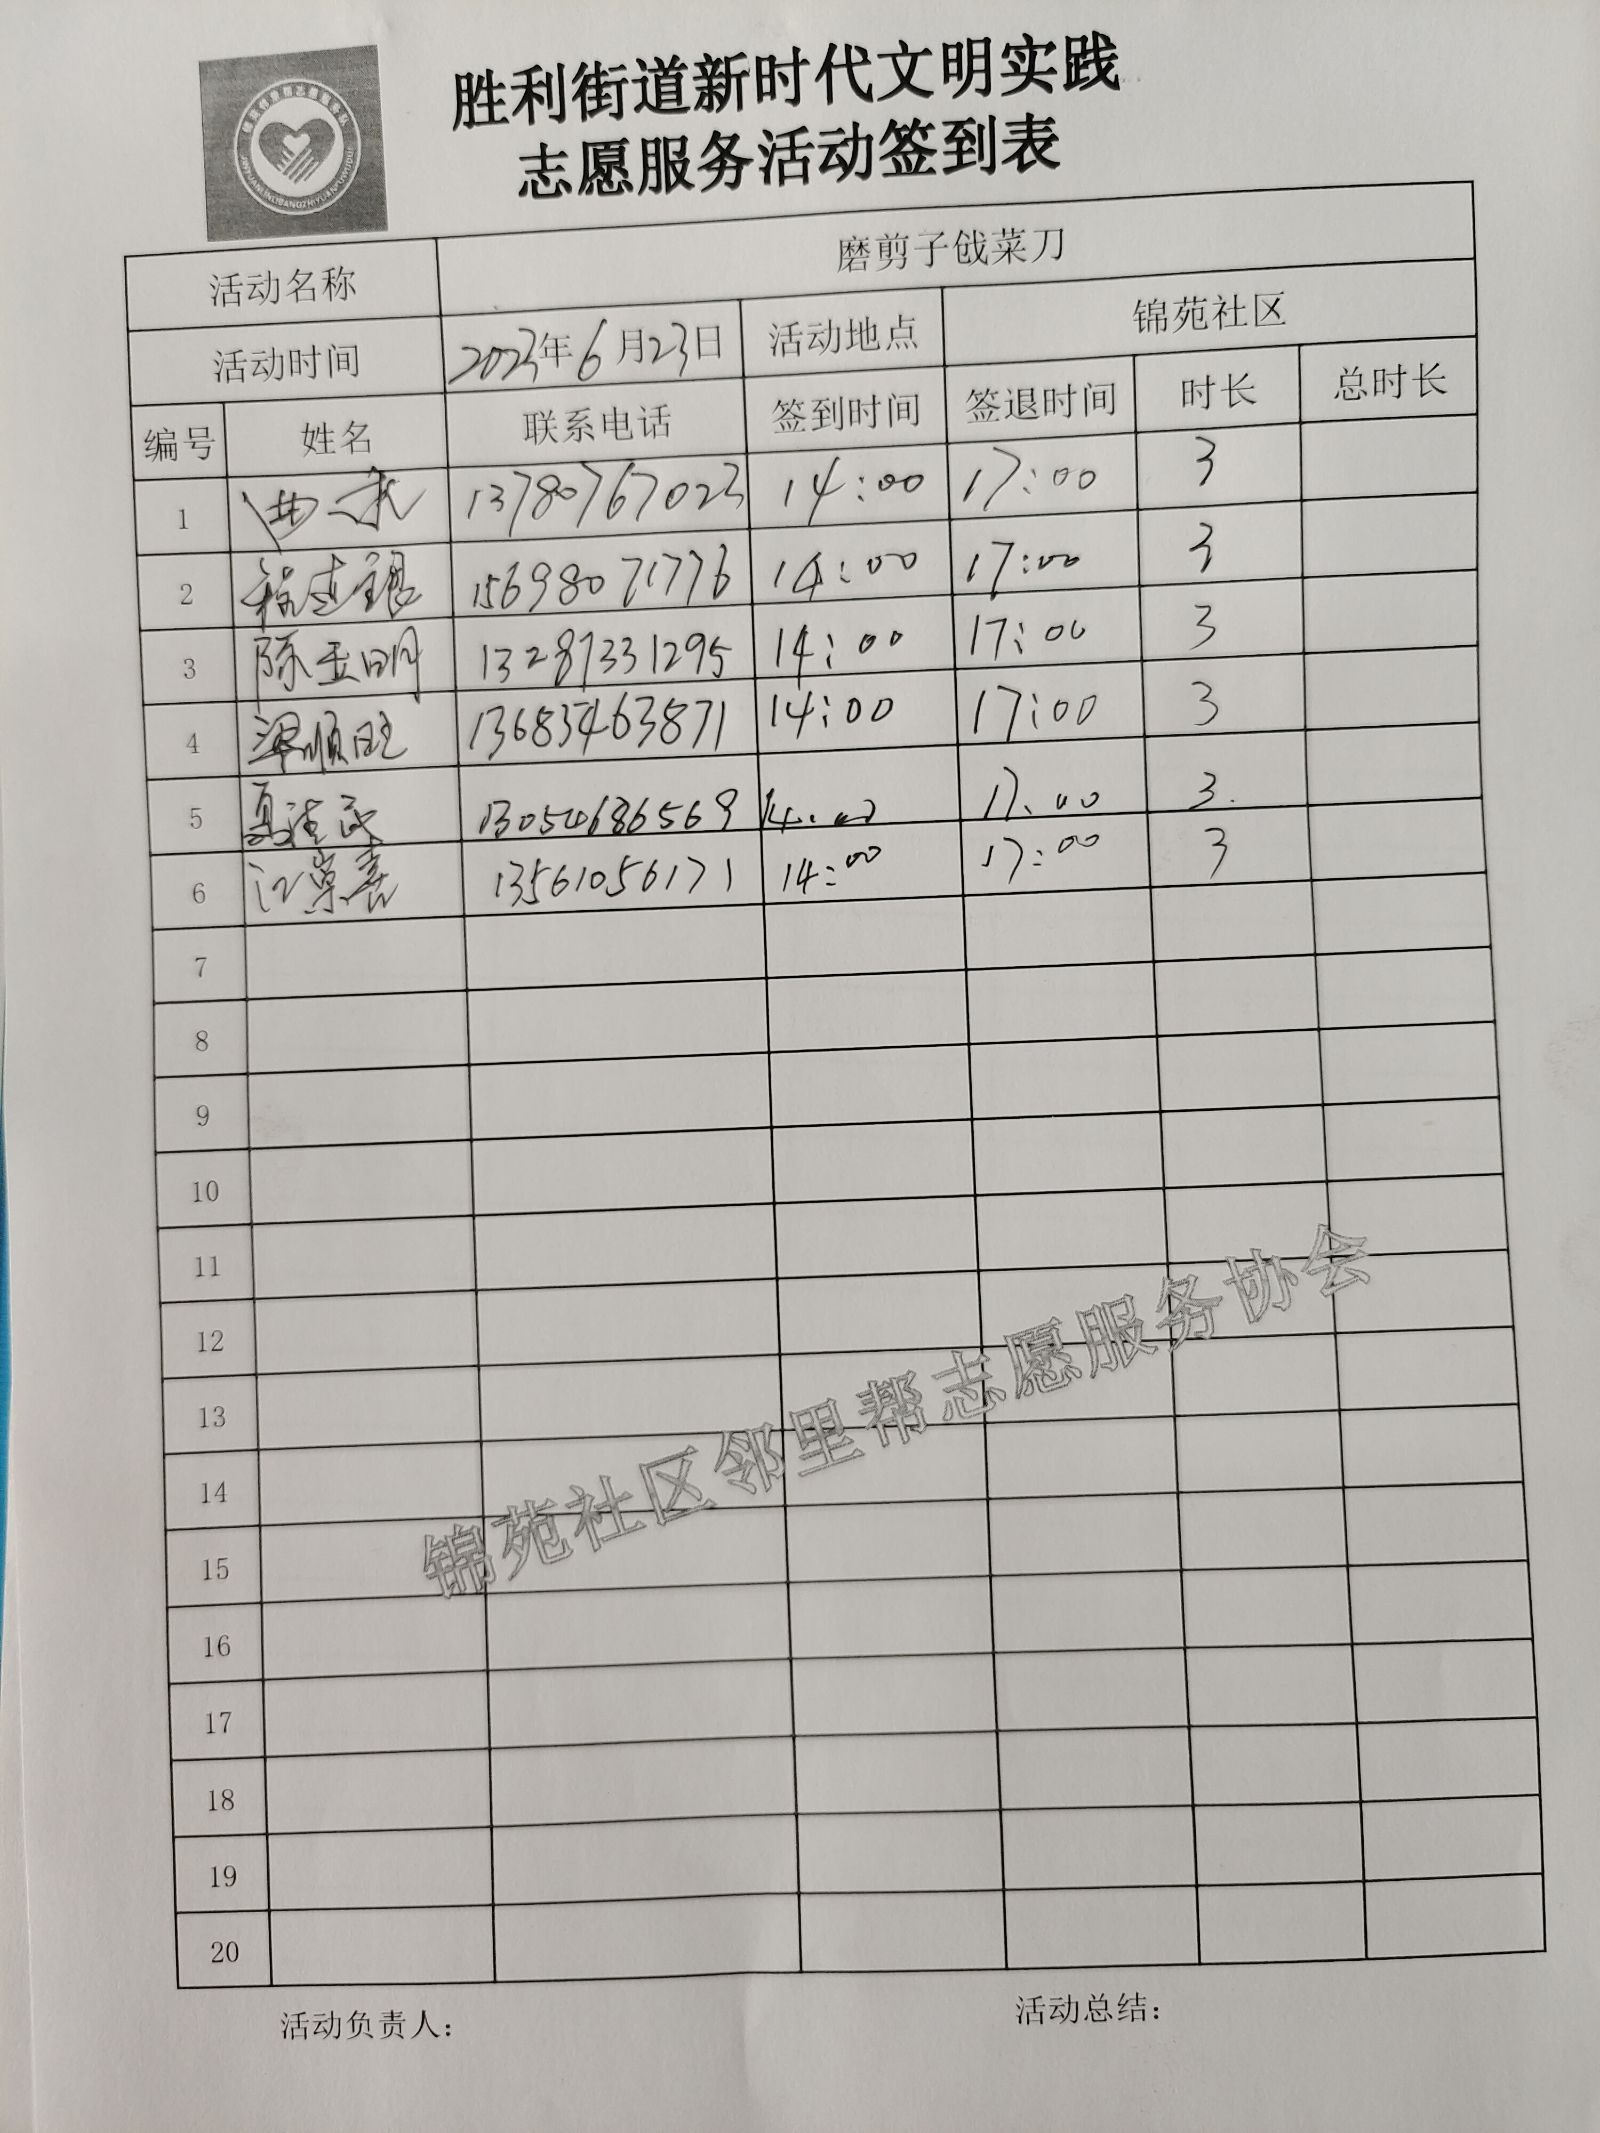 胜利街道新时代文明实践
志愿服务活动签到表
活动名称 磨剪子戗菜刀
活动时间 2023年6月23日 活动地点 锦苑社区
编号 姓名 联系电话 签到时间 签退时间 时长 总时长
1 13780767023 14:00 17:00 3
2 15698071776 14:00 17:00 3
3 陈亚明 13287331295 14:00 17:00 3
4 梁顺旺 13683463871 14:00 17:00 3
5 13054686569 14:00 17:00 3.
6 13561056171 14:00 17:00 3
7
8
9
10
11
12
13
14
15
16
17
18
19
20
锦苑社区邻里帮志愿服务协会
活动负责人： 活动总结：